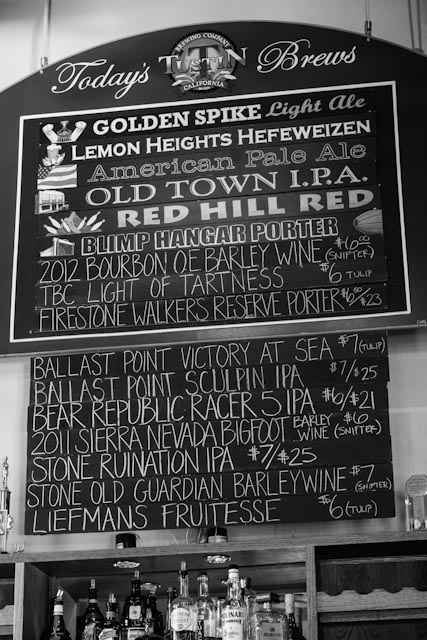 Today's Brews
BREWING COMPANY
TUSTIN
CALIFORNIA
GOLDEN SPIKE Light Ale
LEMON HEIGHTS HEFEWEIZEN
American Pale Ale
OLD TOWN I.P.A.
RED HILL RED
BLIMP HANGAR PORTER
2012 BOURBON O.E BARLEY WINE $6.00 (SNIFTER)
TBC LIGHT OF TARTNESS $6 TULIP
FIRESTONE WALKERS RESERVE PORTER $6.50/$23
BALLAST POINT VICTORY AT SEA $7 (TULIP)
BALLAST POINT SCULPIN IPA $7/$25
BEAR REPUBLIC RACER 5 IPA $6/$21
2011 SIERRA NEVADA BIGFOOT BARLEY WINE $6 (SNIFTER)
STONE RUINATION IPA $7/$25
STONE OLD GUARDIAN BARLEYWINE $7 (SNIFTER)
LIEFMANS FRUITESSE $6 (TULIP)